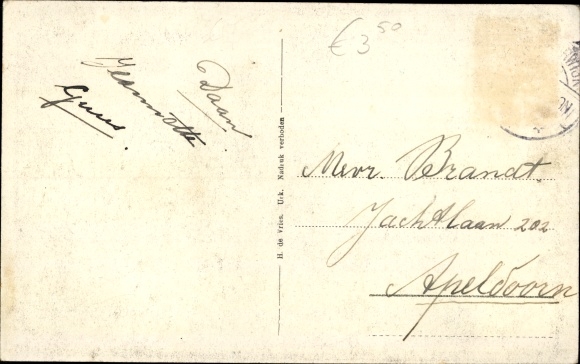 € 3 50
Daan
Jeannette
Guus.
H. de vries. Uck. Nadruk verboden
Mevr. Brandt.
Jachtlaan 202
Apeldoorn